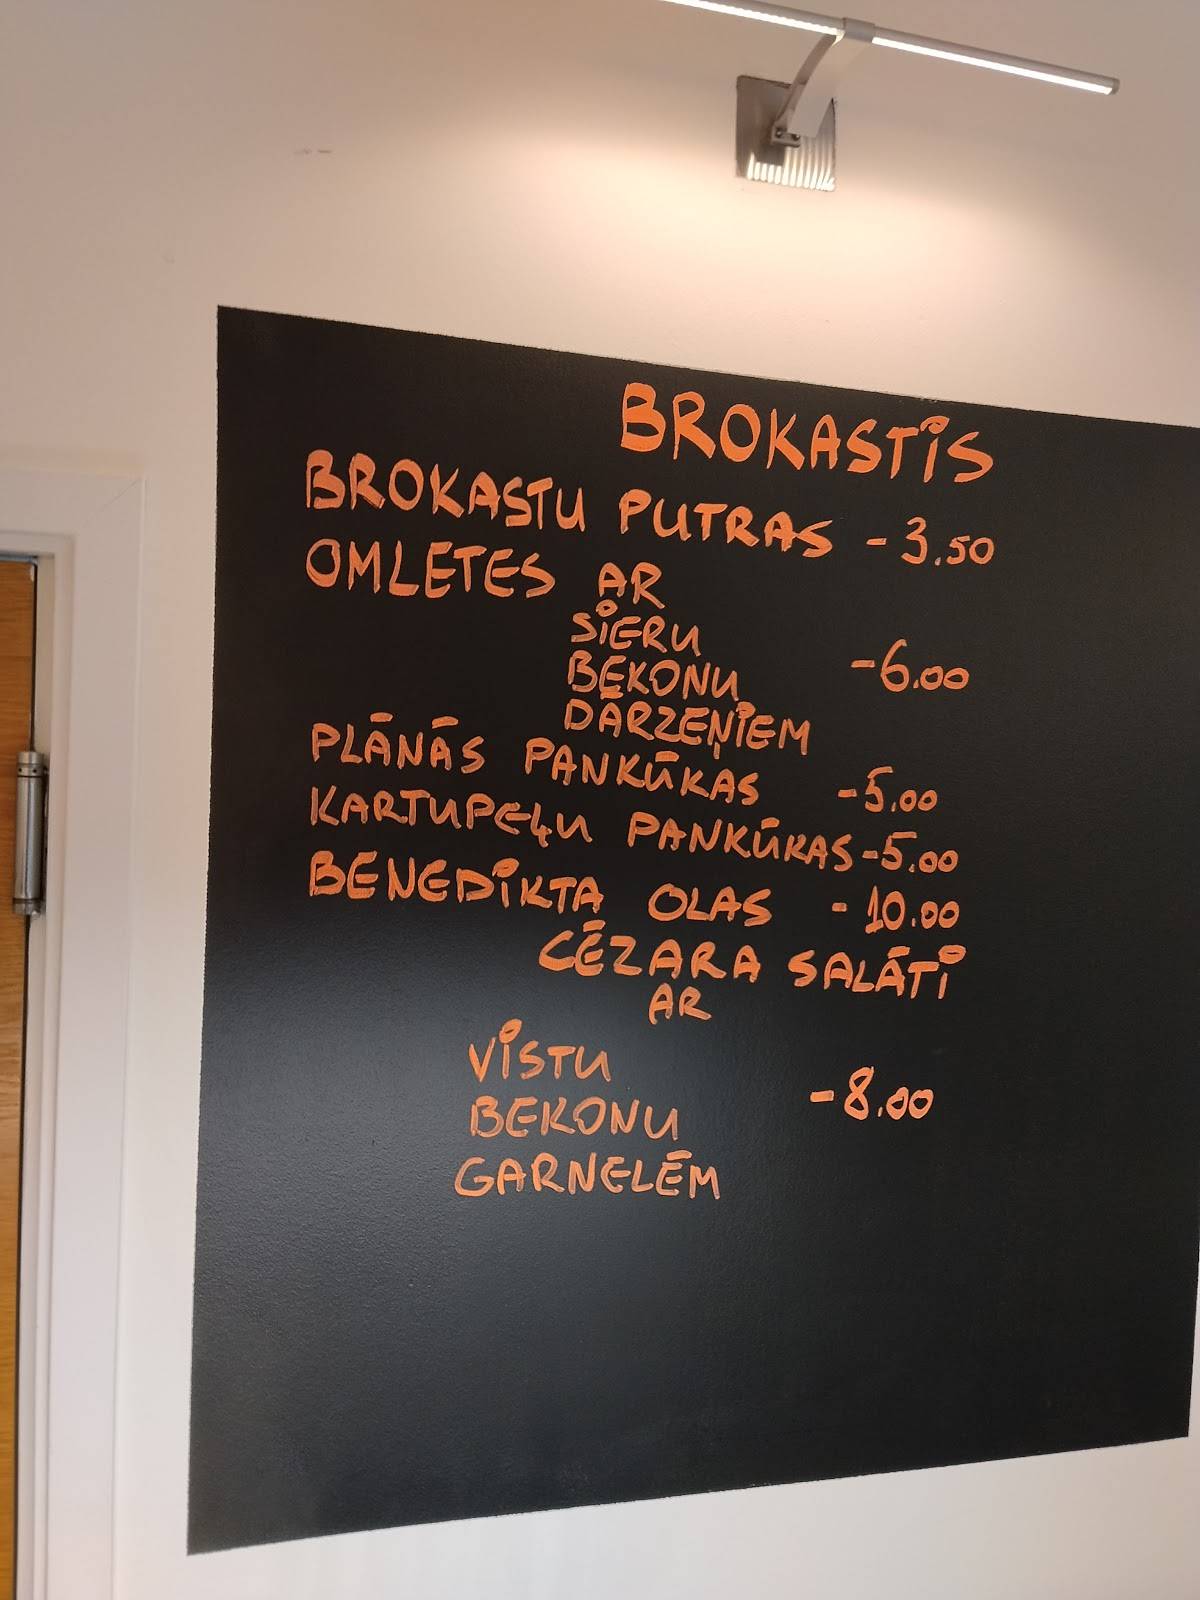 BROKASTIS
BROKASTU PUTRAS - 3.50
OMLETES AR
SIERU
BEKONU - 6.00
DĀRZEŅIEM
PLĀNĀS PANKŪKAS - 5.00
KARTUPEĻU PANKŪKAS - 5.00
BENEDIKTA OLAS - 10.00
CĒZARA SALĀTI
AR
VISTU
BEKONU - 8.00
GARNELĒM